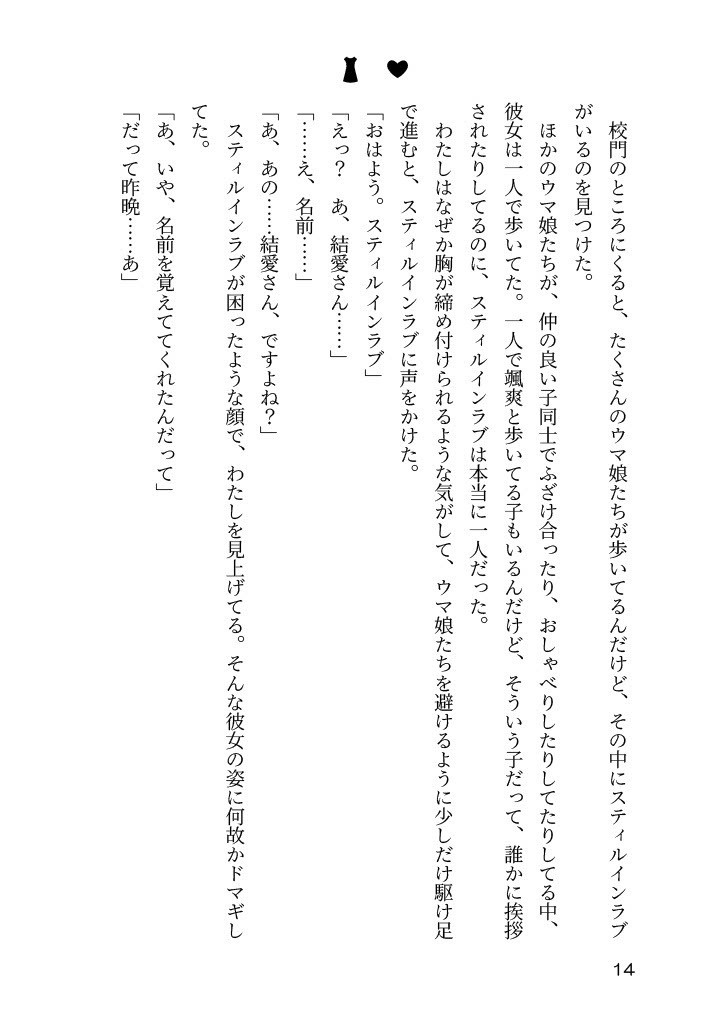 校門のところにくると、たくさんのウマ娘たちが歩いてるんだけど、その中にスティルインラブ
がいるのを見つけた。
　ほかのウマ娘たちが、仲の良い子同士でふざけ合ったり、おしゃべりしたりしてたりしてる中、
彼女は一人で歩いてた。一人で颯爽と歩いてる子もいるんだけど、そういう子だって、誰かに挨拶
されたりしてるのに、スティルインラブは本当に一人だった。
　わたしはなぜか胸が締め付けられるような気がして、ウマ娘たちを避けるように少しだけ駆け足
で進むと、スティルインラブに声をかけた。
「おはよう。スティルインラブ」
「えっ？　あ、結愛さん……」
「……え、名前……」
「あ、あの……結愛さん、ですよね？」
　スティルインラブが困ったような顔で、わたしを見上げてる。そんな彼女の姿に何故かドマギし
てた。
「あ、いや、名前を覚えててくれたんだって」
「だって昨晩……あ」
14